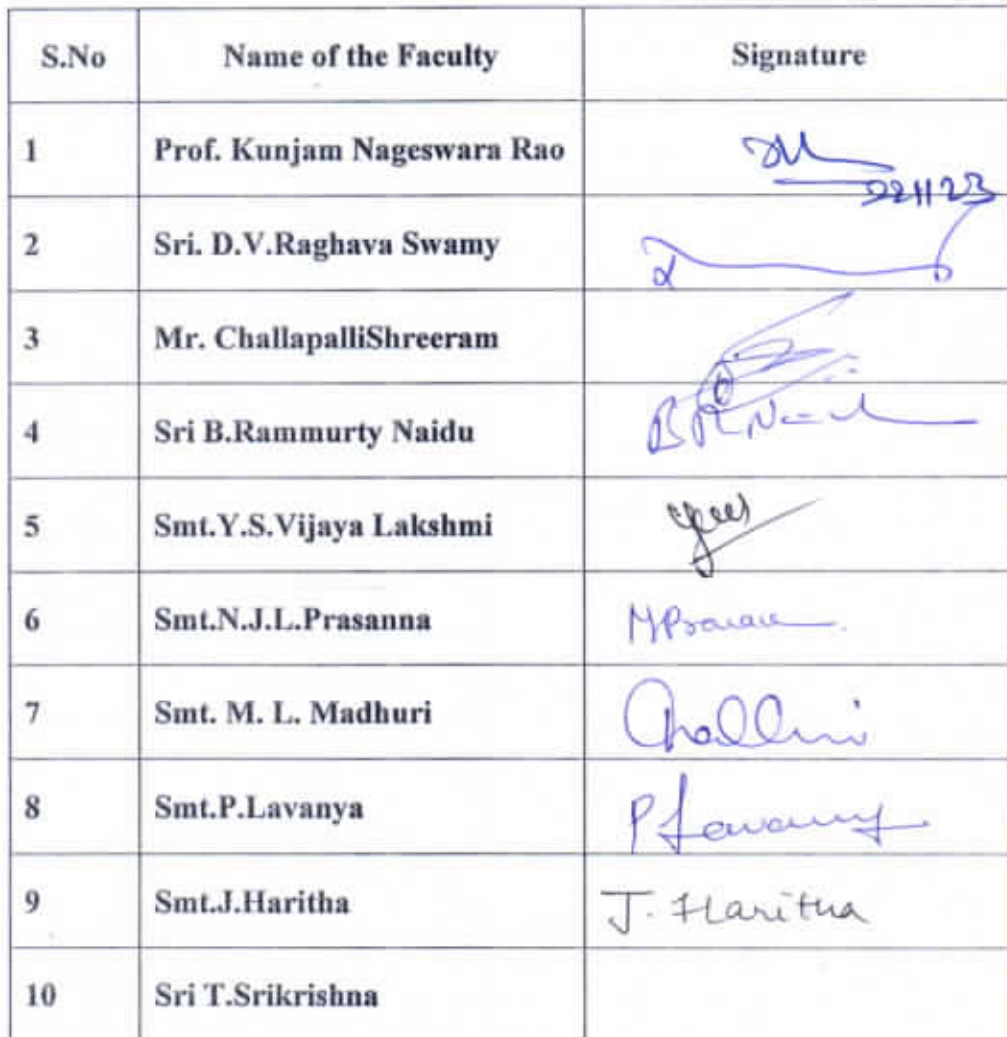 S.No Name of the Faculty Signature
1 Prof. Kunjam Nageswara Rao
2 Sri. D.V.Raghava Swamy
3 Mr. ChallapalliShreeram
4 Sri B.Rammurty Naidu
5 Smt.Y.S.Vijaya Lakshmi
6 Smt.N.J.L.Prasanna
7 Smt. M. L. Madhuri
8 Smt.P.Lavanya
9 Smt.J.Haritha J. Haritha
10 Sri T.Srikrishna